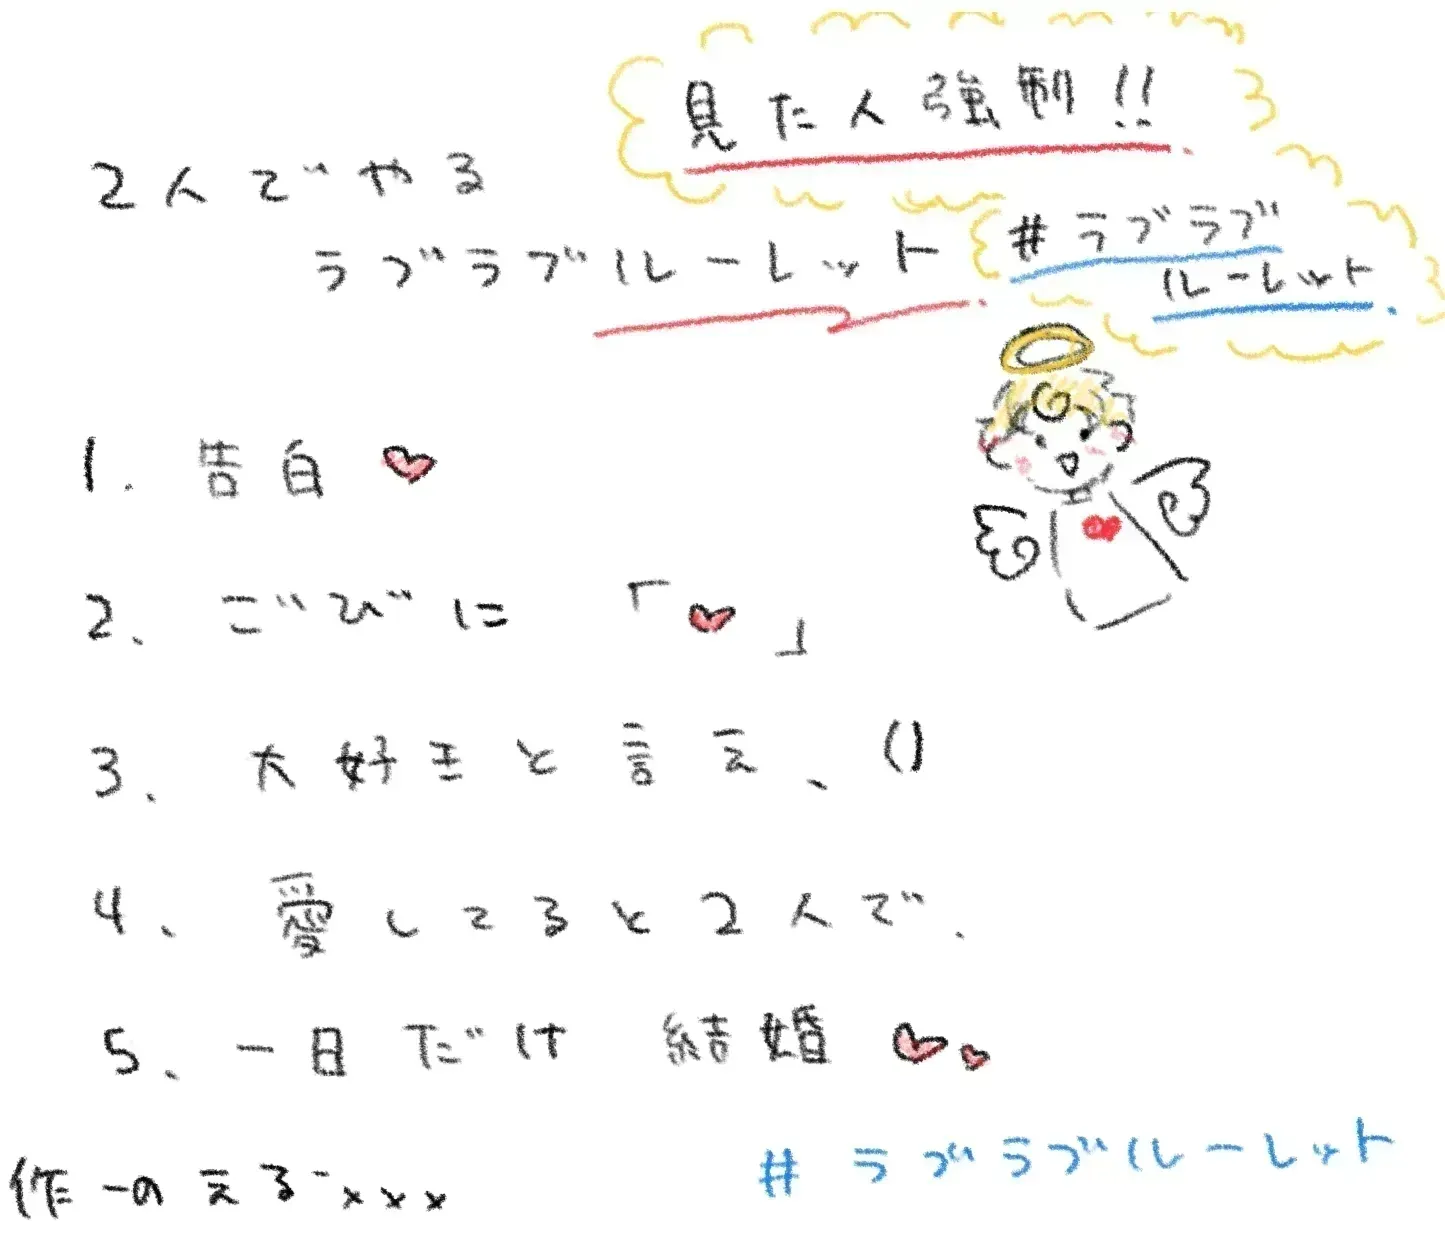 見た人強制!!
2人でやる
ラブラブルーレット
#ラブラブ
ルーレット
1. 告白♥
2、ごびに「♥」
3、大好きと言え、()
4、愛してると2人で.
5、一日だけ 結婚♥♥
#ラブラブルーレット
作-のえる-xxx